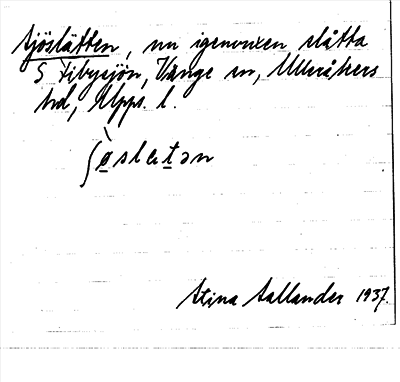 Sjöslätten, nu igenvuxen slåtta
S Fibysjön, Vänge sn, Ulleråkers
hd, Upps. l.
ʃø̀slɛtən
Stina Sallander 1937.